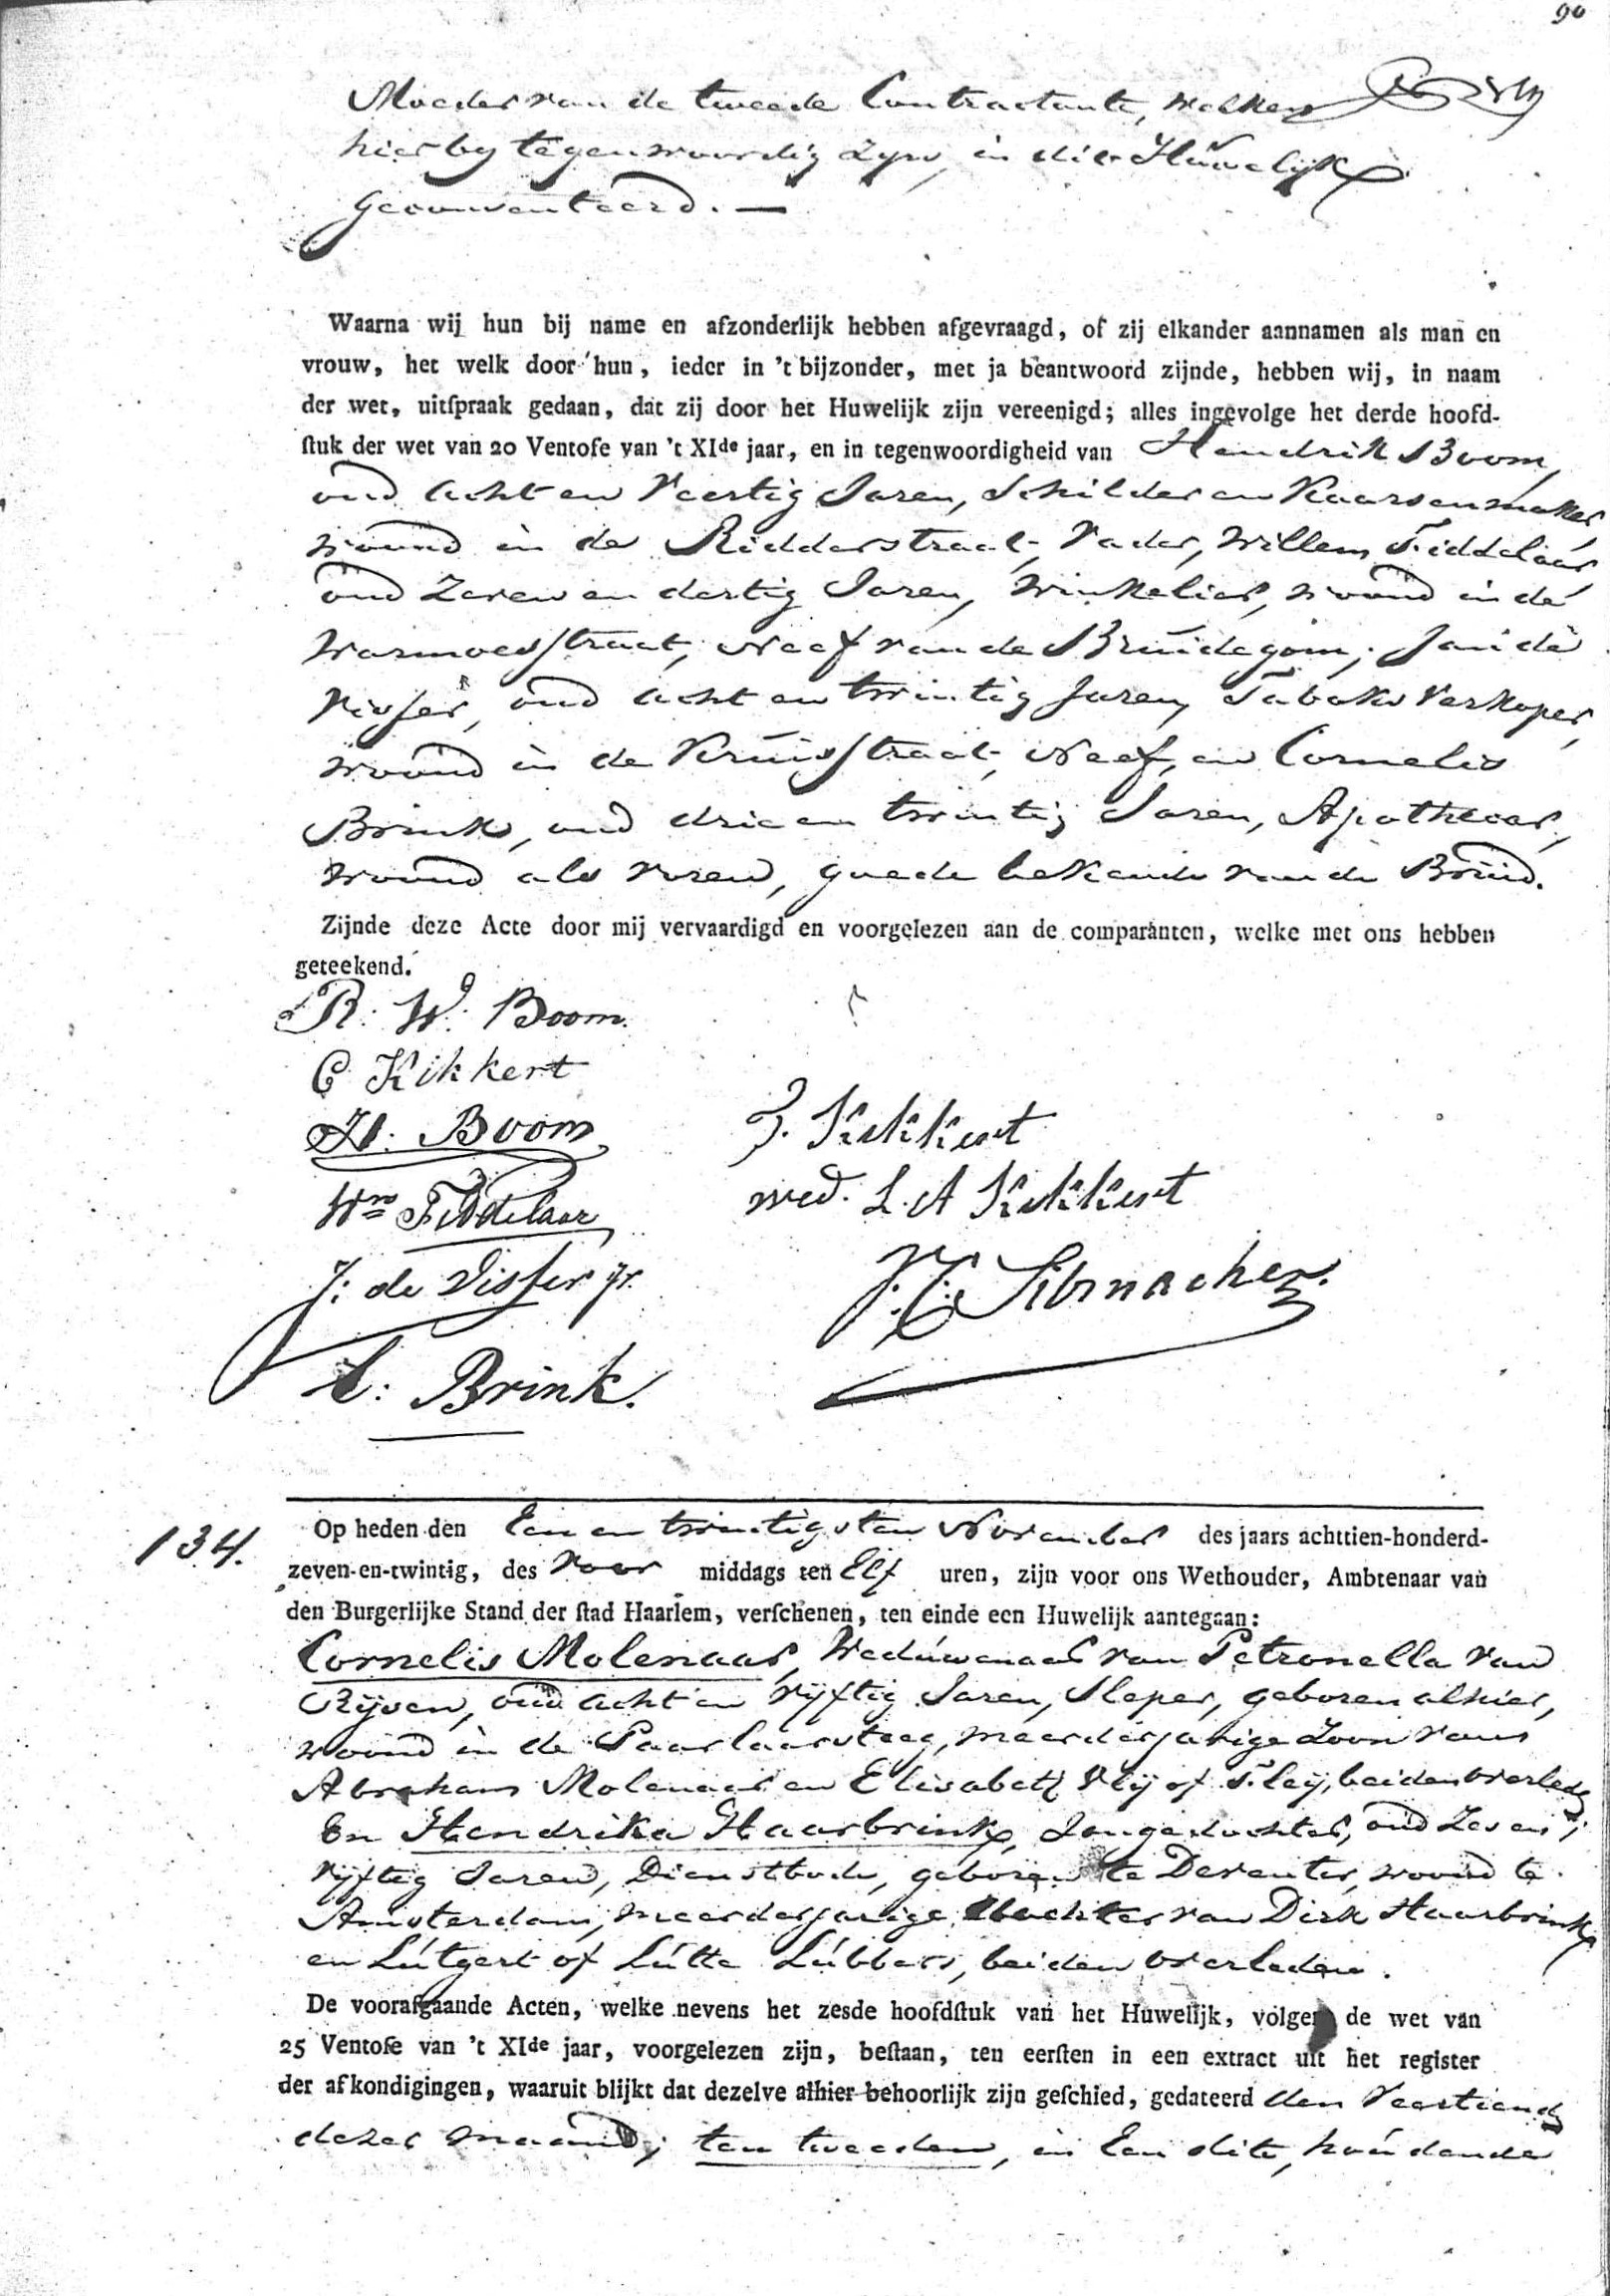 90
Moeder van de tweede Contractante, welken
hierby tegenwoordig zyn, in dit Huwelijk
geconsenteerd. —
Waarna wij hun bij name en afzonderlijk hebben afgevraagd, of zij elkander aannamen als man en
vrouw, het welk door hun, ieder in 't bijzonder, met ja beantwoord zijnde, hebben wij, in naam
der wet, uitſpraak gedaan, dat zij door het Huwelijk zijn vereenigd; alles ingevolge het derde hoofd-
ſtuk der wet van 20 Ventoſe van 't XIde jaar, en in tegenwoordigheid van Hendrik Boom,
oud acht en veertig Jaren, Schilder en Kaarsenmaker
woond in de Ridderstraat, Vader, Willem Fiddelaar
oud Zeven en dertig Jaren, winkelier, woond in de
Warmoesstraat, Neef van de Bruidegom; Jan de
Visser, oud acht en twintig Jaren, Tabaks Verkoper,
woond in de Kruisstraat, Neef, en Cornelis
Brink, oud drie en twintig Jaren, Apothecar,
woond als voren, goede bekende van de Bruid.
Zijnde deze Acte door mij vervaardigd en voorgelezen aan de comparanten, welke met ons hebben
geteekend.
R: W: Boom.
C Kikkert
H: Boom
J. Kikkert
Wm Fiddelaar
wed. L. A Kikkert
J: de Visser Jr.
C: Brink.
134.
Op heden den Een en twintigsten November des jaars achttien-honderd-
zeven-en-twintig, des voor middags ten Elf uren, zijn voor ons Wethouder, Ambtenaar van
den Burgerlijke Stand der ſtad Haarlem, verſchenen, ten einde een Huwelijk aantegaan:
Cornelis Molenaar, Weduwenaar van Petronella van
Rijsen, oud acht en vijftig Jaren, Sleper, geboren alhier,
woond in de Paarlaarsteeg, meerderjarige Zoon van
Abraham Molenaar en Elisabeth Vlij of Fleij, beiden overleden
En Hendrika Haarbrink, Jongedochter, oud Zes en
vijftig Jaren, Dienstbode, geboren te Deventer, woond te
Amsterdam, meerderjarige Dochter van Dirk Haarbrink
en Lutgert of Lutte Lubbers, beiden overleden.
De voorafgaande Acten, welke nevens het zesde hoofdſtuk van het Huwelijk, volgens de wet van
25 Ventoſe van 't XIde jaar, voorgelezen zijn, beſtaan, ten eerſten in een extract uit het register
der afkondigingen, waaruit blijkt dat dezelve alhier behoorlijk zijn geſchied, gedateerd den Veertiende
dezer maand; ten tweeden, in Een dito, houdende